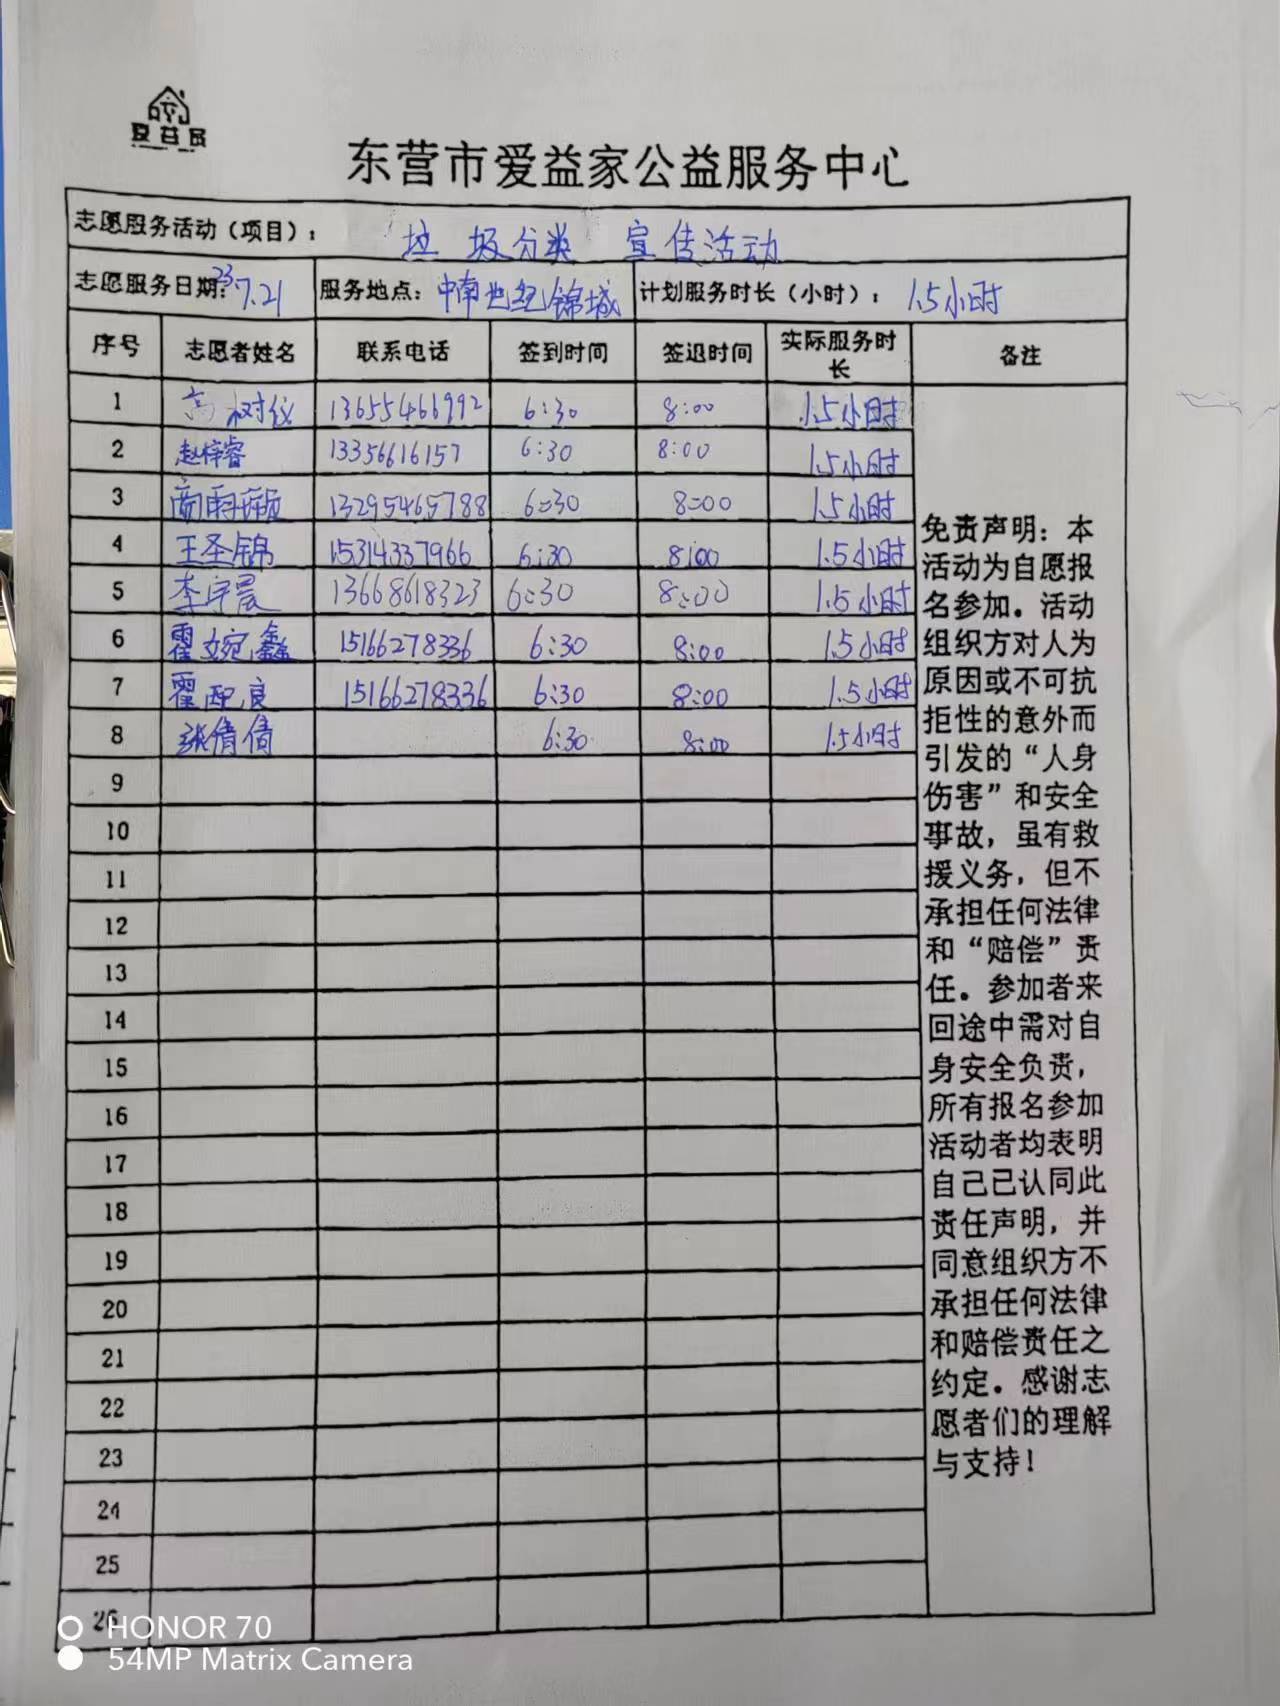 爱益家
东营市爱益家公益服务中心
志愿服务活动（项目）： 垃圾分类 宣传活动
志愿服务日期：23 7.21 服务地点：中南世纪锦城 计划服务时长（小时）： 1.5小时
序号 志愿者姓名 联系电话 签到时间 签退时间 实际服务时长 备注
1 高树仪 13655466992 6:30 8:00 1.5小时
2 赵梓睿 13356616157 6:30 8:00 1.5小时
3 13295465788 6:30 8:00 1.5小时
4 王圣锦 15314337966 6:30 8:00 1.5小时
5 李宇晨 13668618323 6:30 8:00 1.5小时
6 霍婉鑫 15166278336 6:30 8:00 1.5小时
7 霍配良 15166278336 6:30 8:00 1.5小时
8 张倩倩 6:30 8:00 1.5小时
9
10
11
12
13
14
15
16
17
18
19
20
21
22
23
24
25
26
免责声明：本
活动为自愿报
名参加。活动
组织方对人为
原因或不可抗
拒性的意外而
引发的“人身
伤害”和安全
事故，虽有救
援义务，但不
承担任何法律
和“赔偿”责
任。参加者来
回途中需对自
身安全负责，
所有报名参加
活动者均表明
自己已认同此
责任声明，并
同意组织方不
承担任何法律
和赔偿责任之
约定。感谢志
愿者们的理解
与支持！
HONOR 70
54MP Matrix Camera